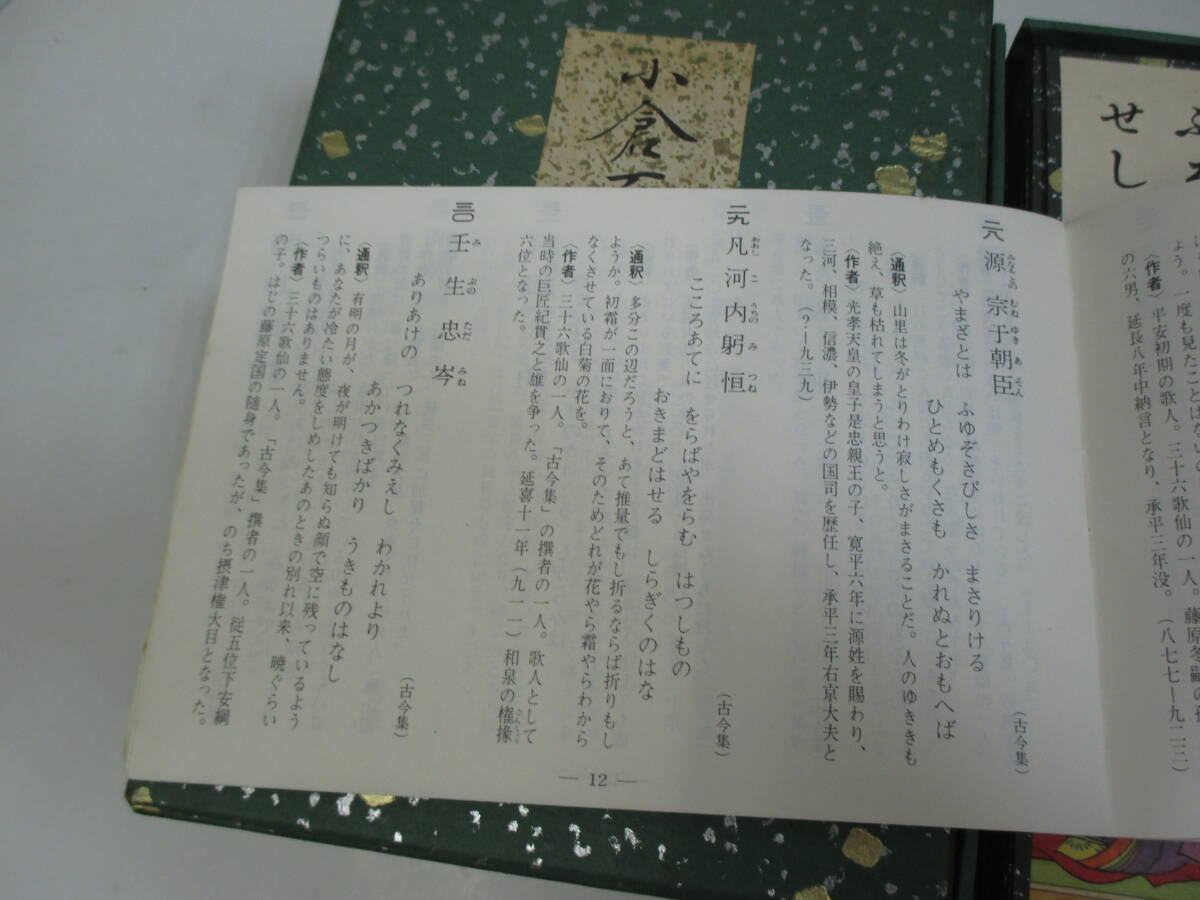 小倉百
せし
よう。一度も見たことはない
〈作者〉平安初期の歌人。三十六歌仙の一人。藤原冬嗣の孫
の六男、延長八年中納言となり、承平三年没。(八七七ー九二三)
二八 源宗于朝臣 (古今集)
みなもとの むね ゆき あ そん
やまざとは ふゆぞさびしさ まさりける
ひとめもくさも かれぬとおもへば
〈通釈〉山里は冬がとりわけ寂しさがまさることだ。人のゆききも
絶え、草も枯れてしまうと思うと。
〈作者〉光孝天皇の皇子是忠親王の子、寛平六年に源姓を賜わり、
三河、相模、信濃、伊勢などの国司を歴任し、承平三年右京大夫と
なった。(?ー九三九)
二九 凡河内躬恒 (古今集)
おおし こ うちの み つね
こころあてに をらばやをらむ はつしもの
おきまどはせる しらぎくのはな
〈通釈〉多分この辺だろうと、あて推量でもし折るならば折りもし
ようか。初霜が一面におりて、そのためどれが花やら霜やらわから
なくさせている白菊の花を。
〈作者〉三十六歌仙の一人。「古今集」の撰者の一人。歌人として
当時の巨匠紀貫之と雄を争った。延喜十一年(九一一)和泉の権掾
ごんじょう
六位となった。
三〇 壬生忠岑 (古今集)
み ぶの ただ みね
ありあけの つれなくみえし わかれより
あかつきばかり うきものはなし
〈通釈〉有明の月が、夜が明けても知らぬ顔で空に残っているよう
に、あなたが冷たい態度をしめしたあのときの別れ以来、暁ぐらい
つらいものはありません。
〈作者〉三十六歌仙の一人。「古今集」撰者の一人。従五位下安綱
の子。はじめ藤原定国の随身であったが、のち摂津権大目となった。
— 12 —